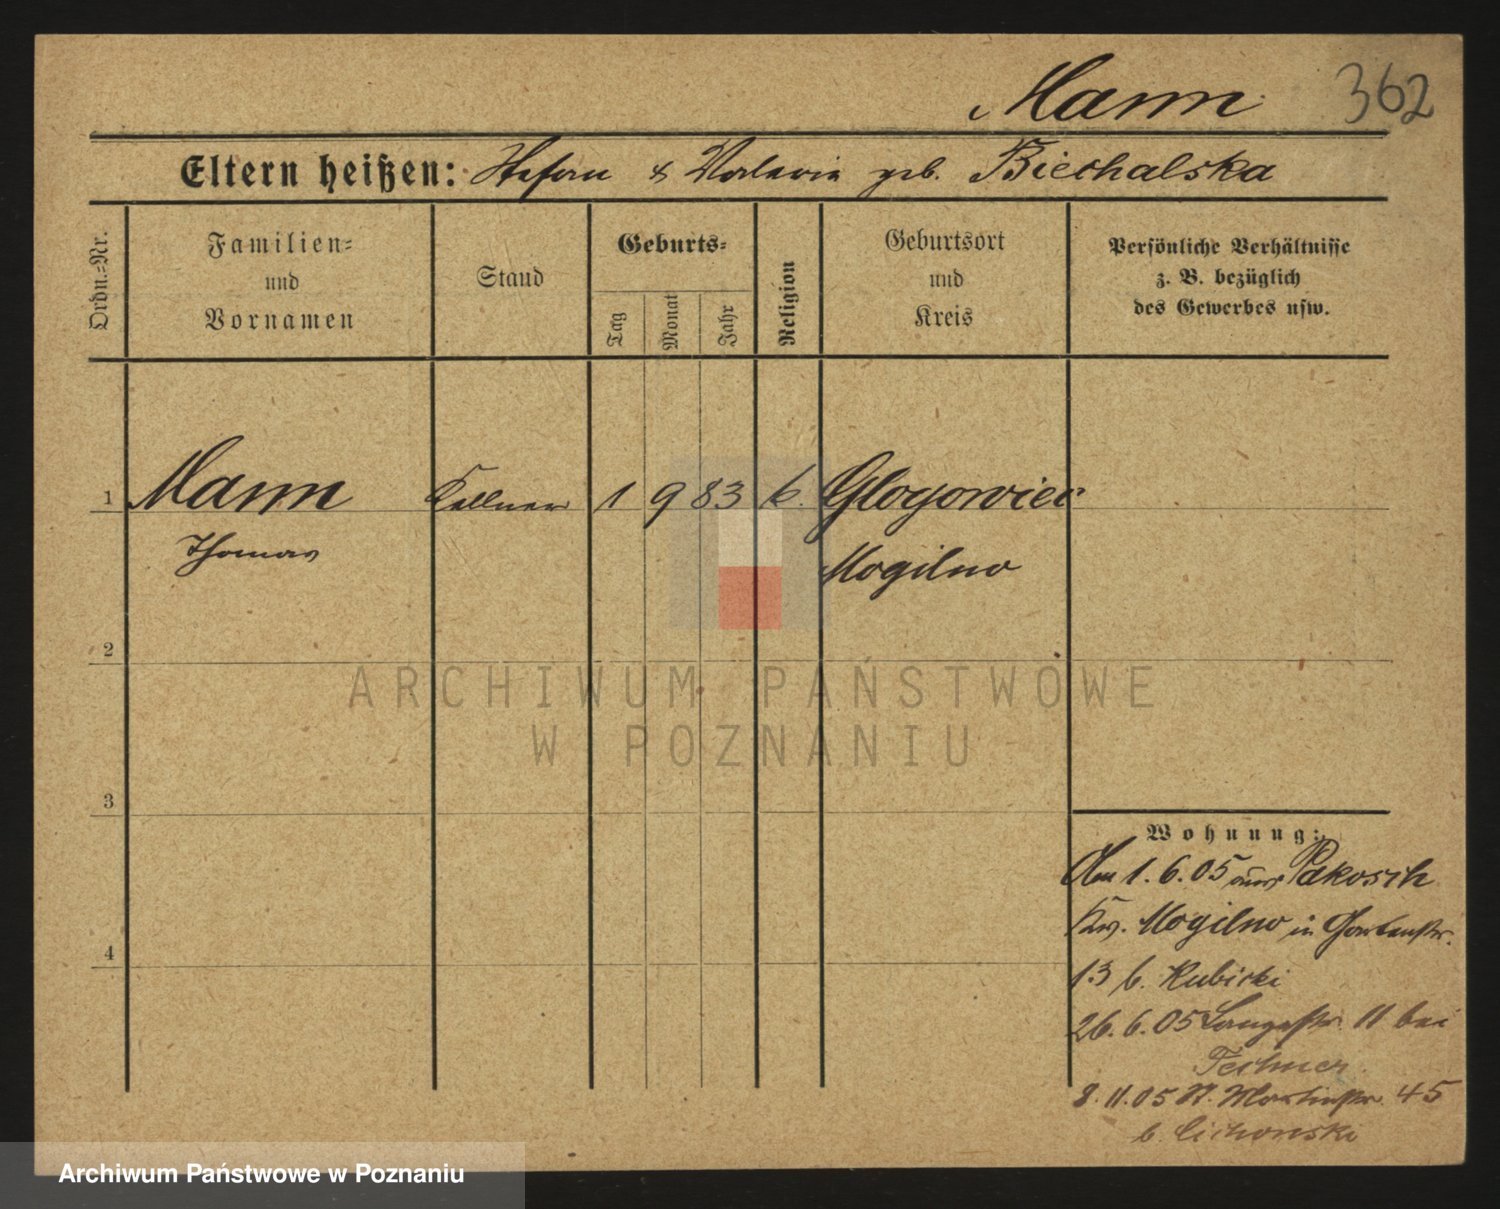 Mann 362
Eltern heißen: Stefan & Valeria geb. Biechalska
Ordn.=Nr.
Familien=
und
Vornamen
Stand
Geburts=
Tag
Monat
Jahr
Religion
Geburtsort
und
Kreis
Persönliche Verhältnisse
z. B. bezüglich
des Gewerbes usw.
1 Mann Kellner 1 9 83 k. Glogowiec
Thomas Mogilno
2
3
4
Wohnung:
Am 1.6.05 aus Pakosch
Krs. Mogilno in Gartenstr.
13 b. Kubicki
26.6.05 Langestr. 11 bei
Techner
8.11.05 St. Martinstr. 45
b. Cichonski
ARCHIWUM PAŃSTWOWE
W POZNANIU
Archiwum Państwowe w Poznaniu